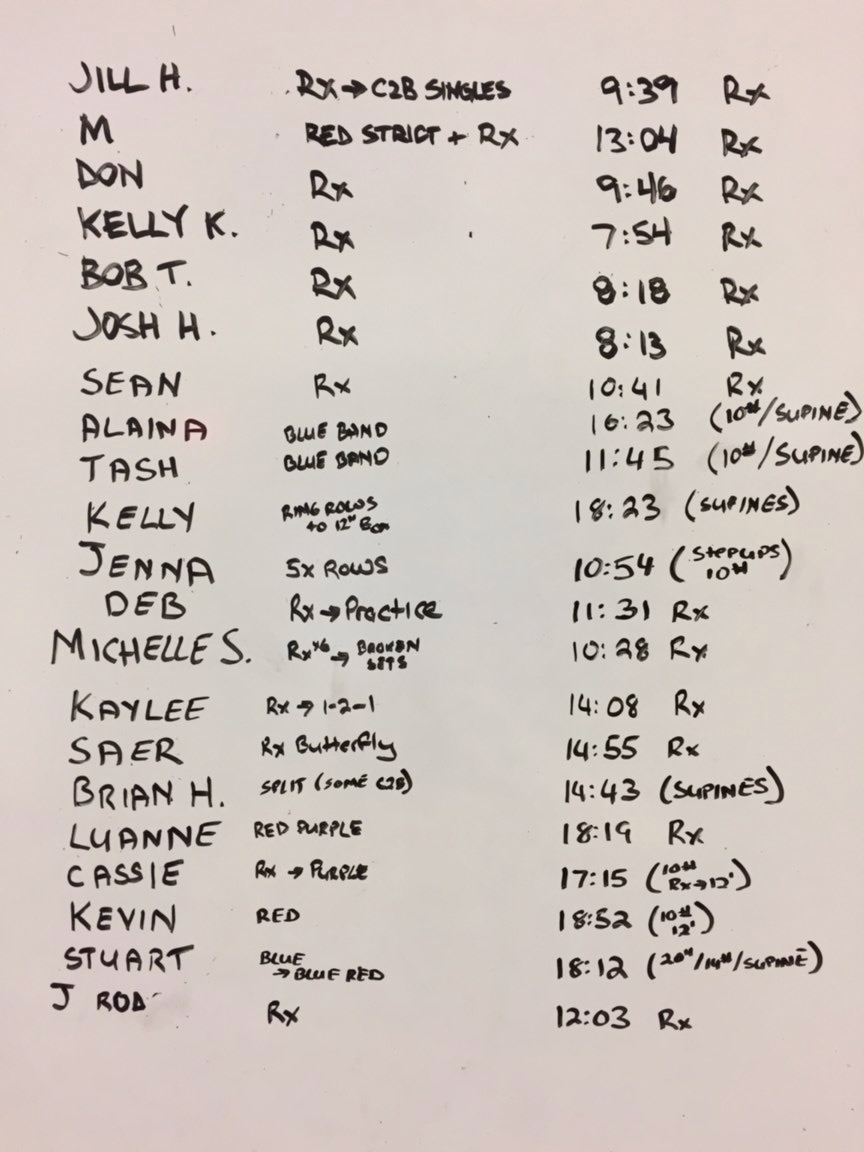 JILL H. Rx → C2B SINGLES 9:39 Rx
M RED STRICT + Rx 13:04 Rx
DON Rx 9:46 Rx
KELLY K. Rx 7:54 Rx
BOB T. Rx 8:18 Rx
JOSH H. Rx 8:13 Rx
SEAN Rx 10:41 Rx
ALAINA BLUE BAND 16:23 (10#/SUPINE)
TASH BLUE BAND 11:45 (10#/SUPINE)
KELLY RING ROWS 18:23 (SUPINES)
to 12" Box
JENNA 5x ROWS 10:54 (STEPUPS
10#)
DEB Rx → Practice 11:31 Rx
MICHELLE S. Rx x6 → BROKEN 10:28 Rx
SETS
KAYLEE Rx → 1-2-1 14:08 Rx
SAER Rx Butterfly 14:55 Rx
BRIAN H. SPLIT (SOME C2B) 14:43 (SUPINES)
LUANNE RED PURPLE 18:19 Rx
CASSIE Rx → PURPLE 17:15 (10#
Rx→12')
KEVIN RED 18:52 (10#
12')
STUART BLUE 18:12 (20"/14#/SUPINE)
→ BLUE RED
J ROD Rx 12:03 Rx